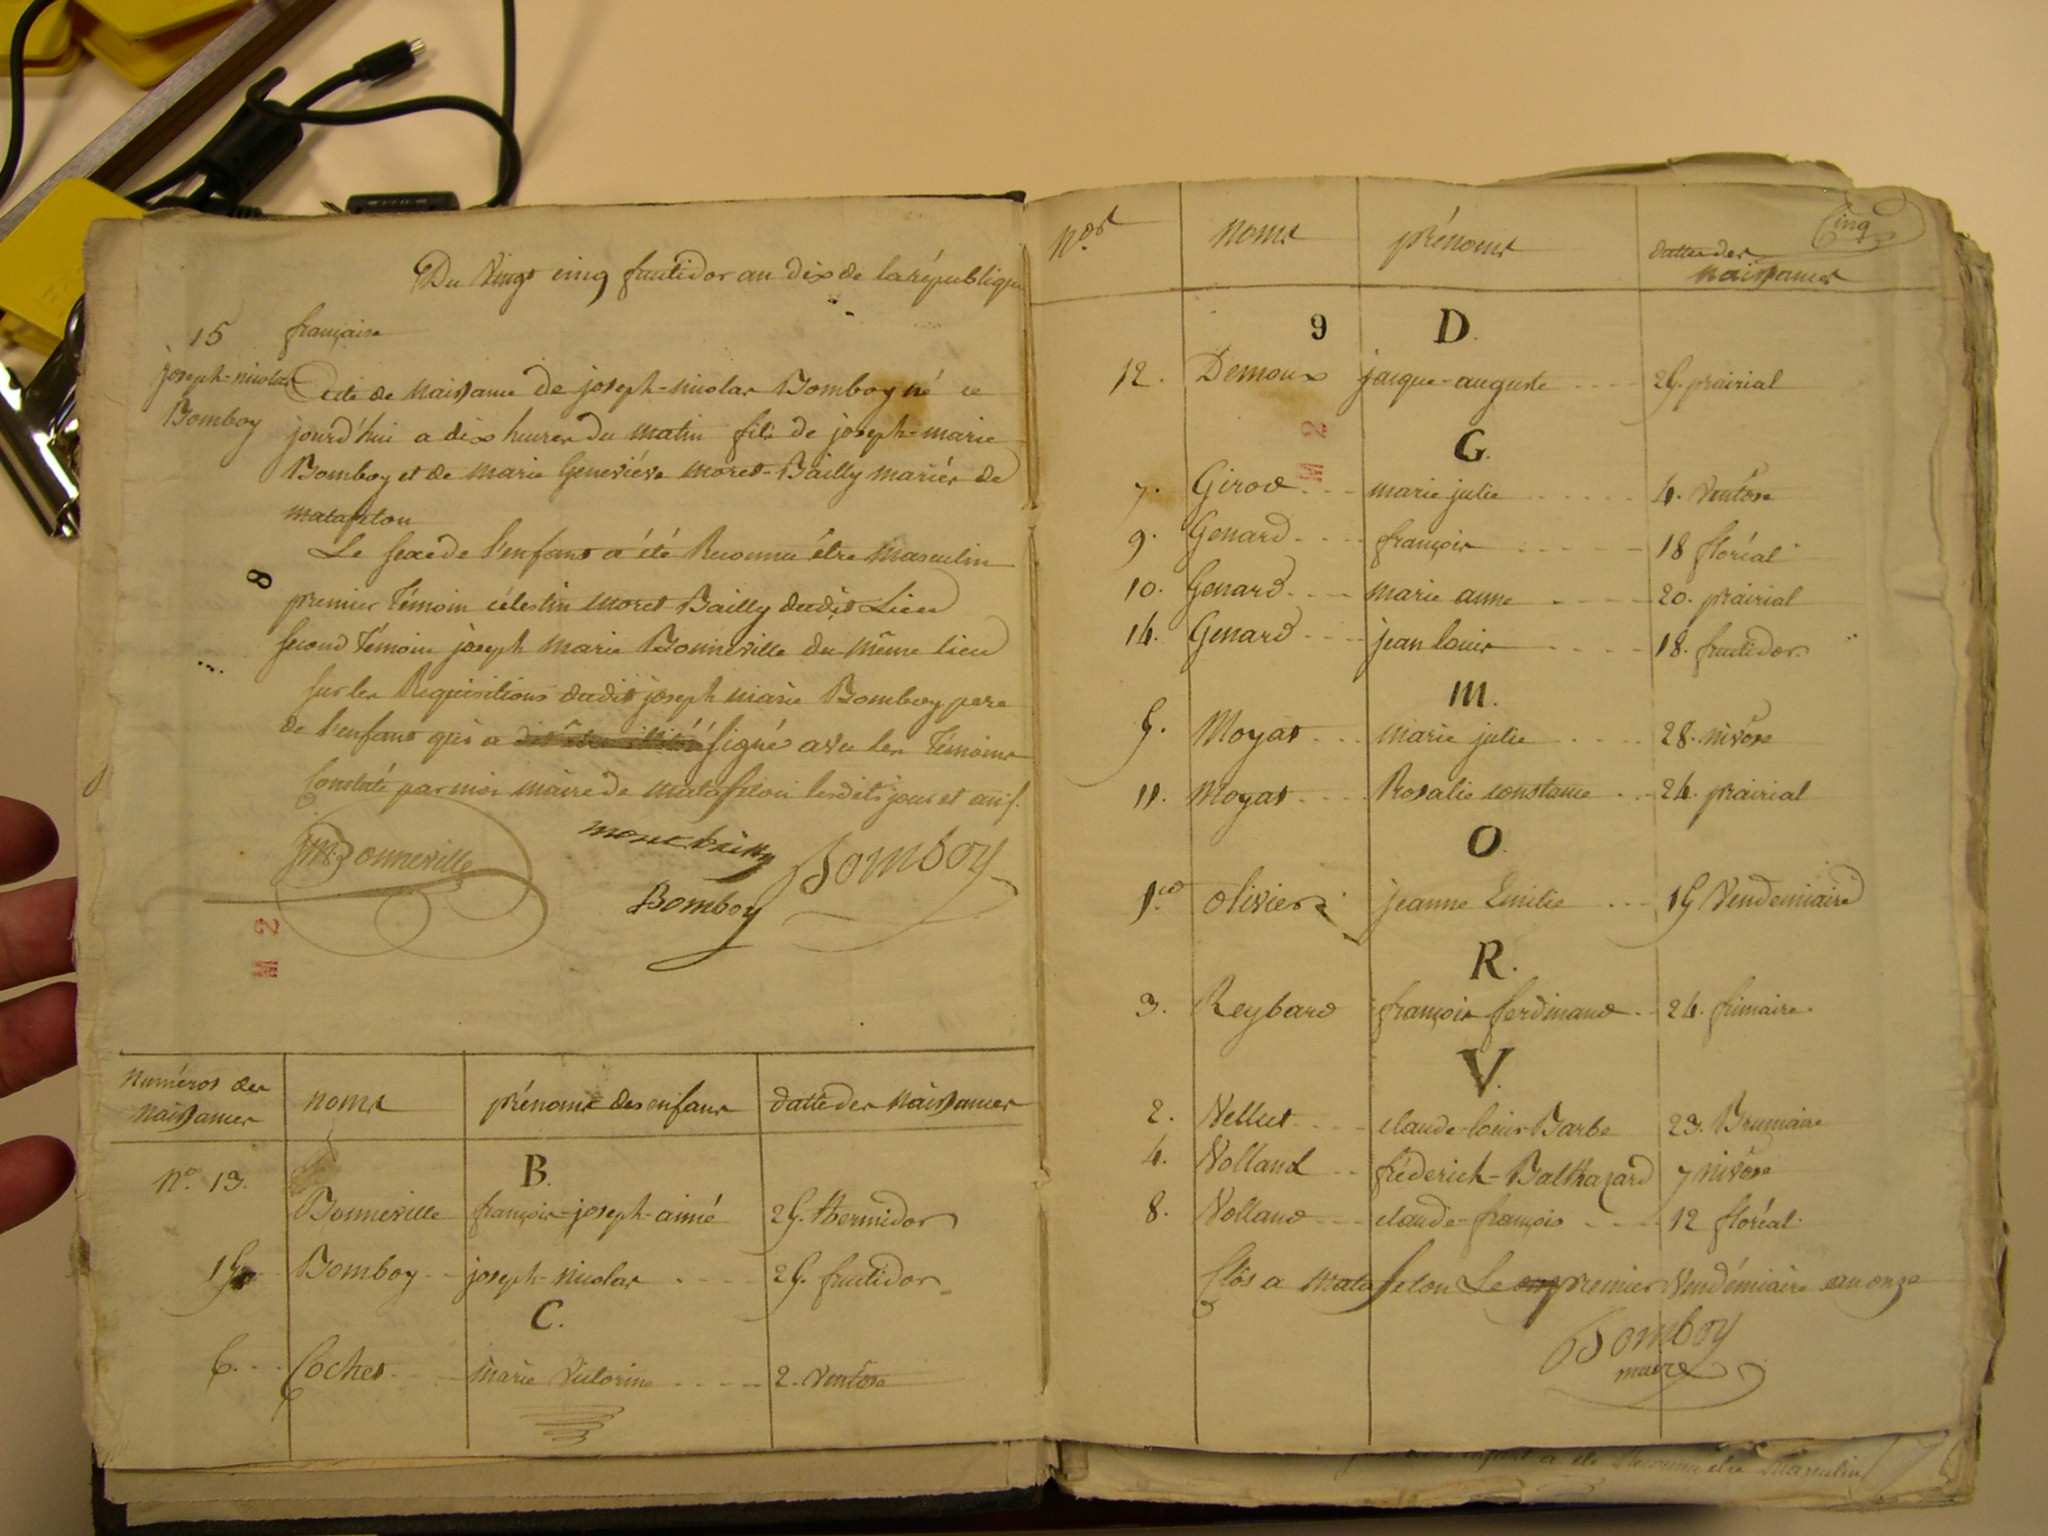 Du Vingt cinq fructidor an dix de la république
15 française
joseph-nicolas
Bomboy
Acte de Naissance de joseph-nicolas Bomboy né ce
jourd'hui a dix heures du matin fils de joseph-marie
Bomboy et de marie Geneviéve moret-Bailly mariés de
matafelon
Le sexe de l'enfant a été Reconnu être masculin
8
premier Témoin célestin moret Bailly dudit Lieu
second Témoin joseph marie Bonneville du même lieu
sur les Requisitions dudit joseph marie Bomboy pere
de l'enfant qui a signé avec les Témoins
Constaté par moi maire de matafelon lesdits jour et an
JM Bonneville moret bailly Bomboy
Bomboy
M 2
Numéros des Naissances noms prénoms des enfans datte des Naissances
B.
N.º 13. Bonneville françois-joseph-aimé 25. thermidor
15 Bomboy joseph-nicolas 25. fructidor
C.
6. Cochet marie Victorine 2. Ventôse
Cinq
N.os noms prénoms datte des naissances
9 D.
12. Demoux jacque-auguste 25. prairial
M 2
G.
7. Girod marie julie 4. Ventôse
9. Genard françois 18 floréal
10. Genard marie anne 20. prairial
14. Genard jean louis 18. fructidor
M.
5. Moyat marie julie 28. nivôse
11. Moyat Rosalie constance 24. prairial
O.
1.er Olivier jeanne Emilie 15 Vendemiaire
R.
3. Reybard françois ferdinand 24. frimaire
V.
2. Vellut claude-louis-Barbe 23. Brumaire
4. Volland fréderich-Balthazard 7 nivôse
8. Volland claude-françois 12 floréal
Clôs a Matafelon Le premier Vendémiaire an onze
Bomboy
maire
a été Reconnu être Masculin